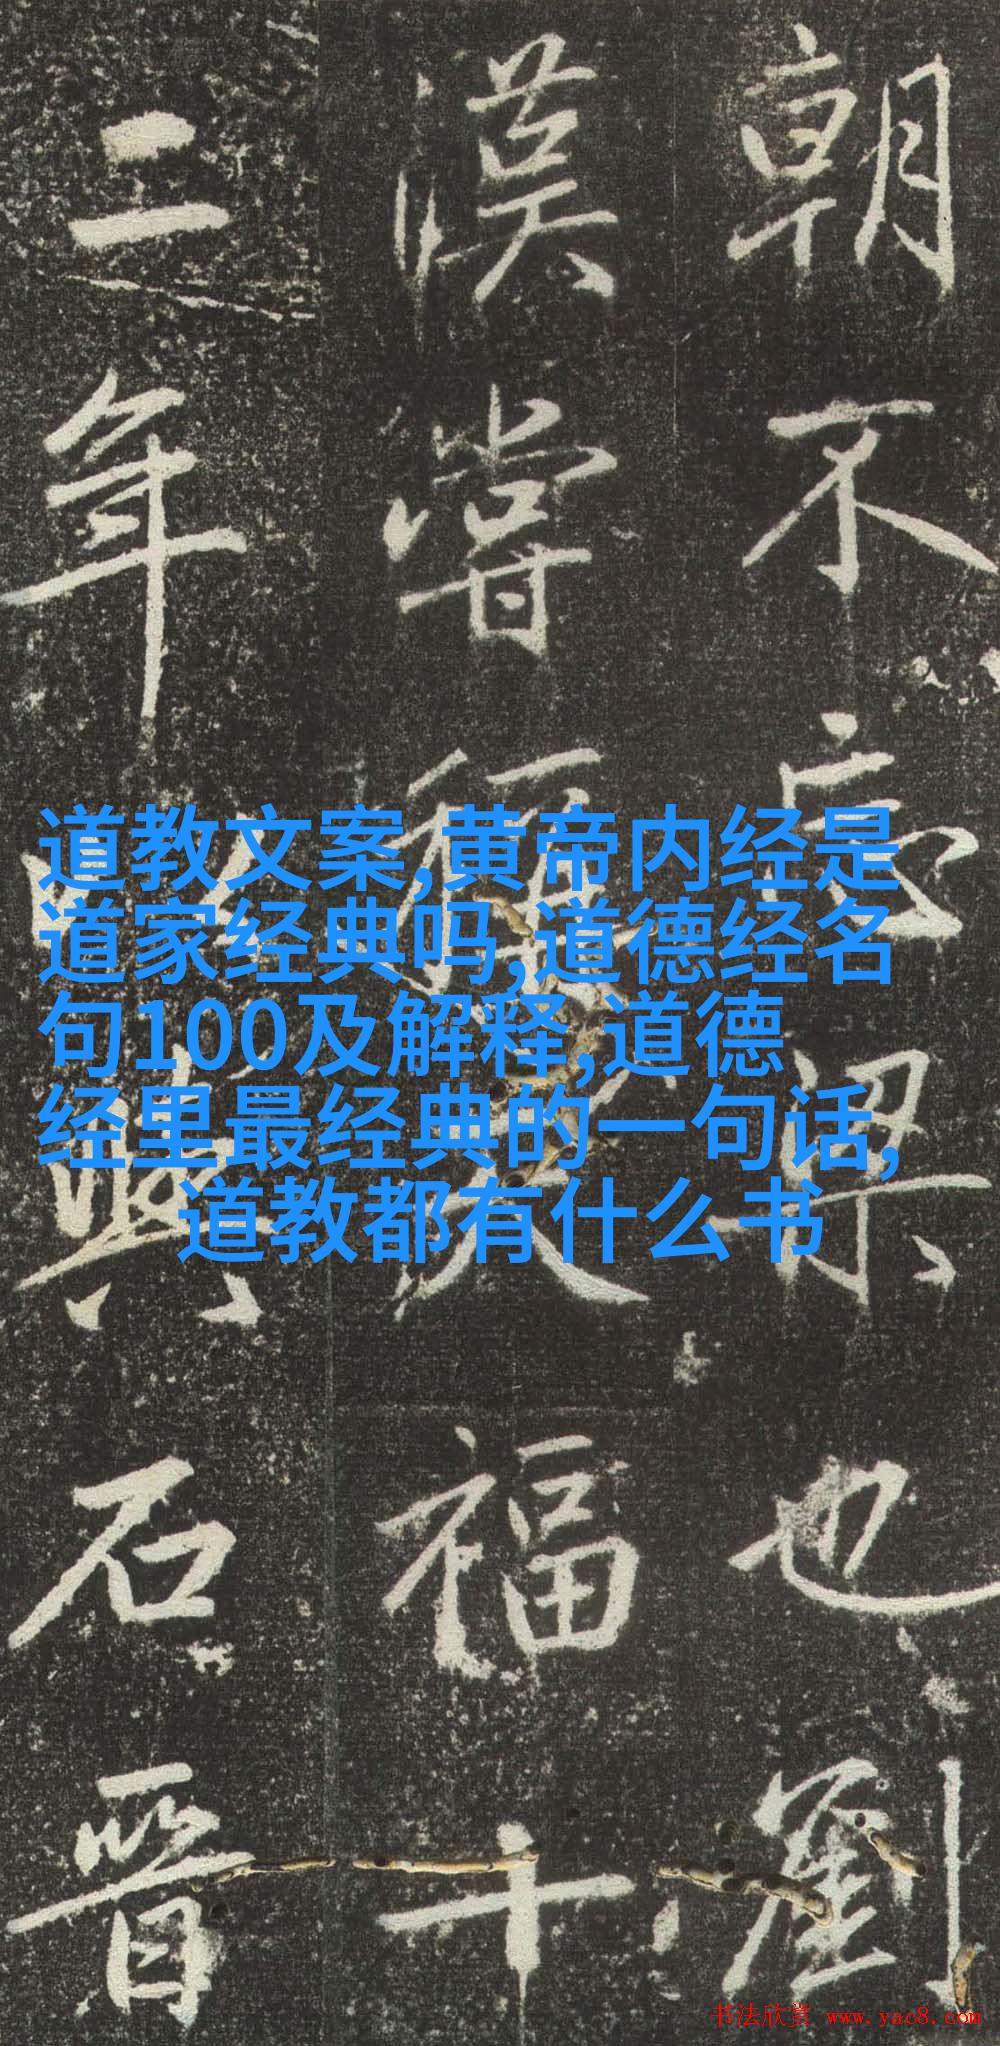 朝不忘梁也劉
漢嘗稱天福十
二年與石晉
道教文案,黄帝内经是
道家经典吗,道德经名
句100及解释,道德
经里最经典的一句话,
道教都有什么书
书法欣赏 www.yac8.com